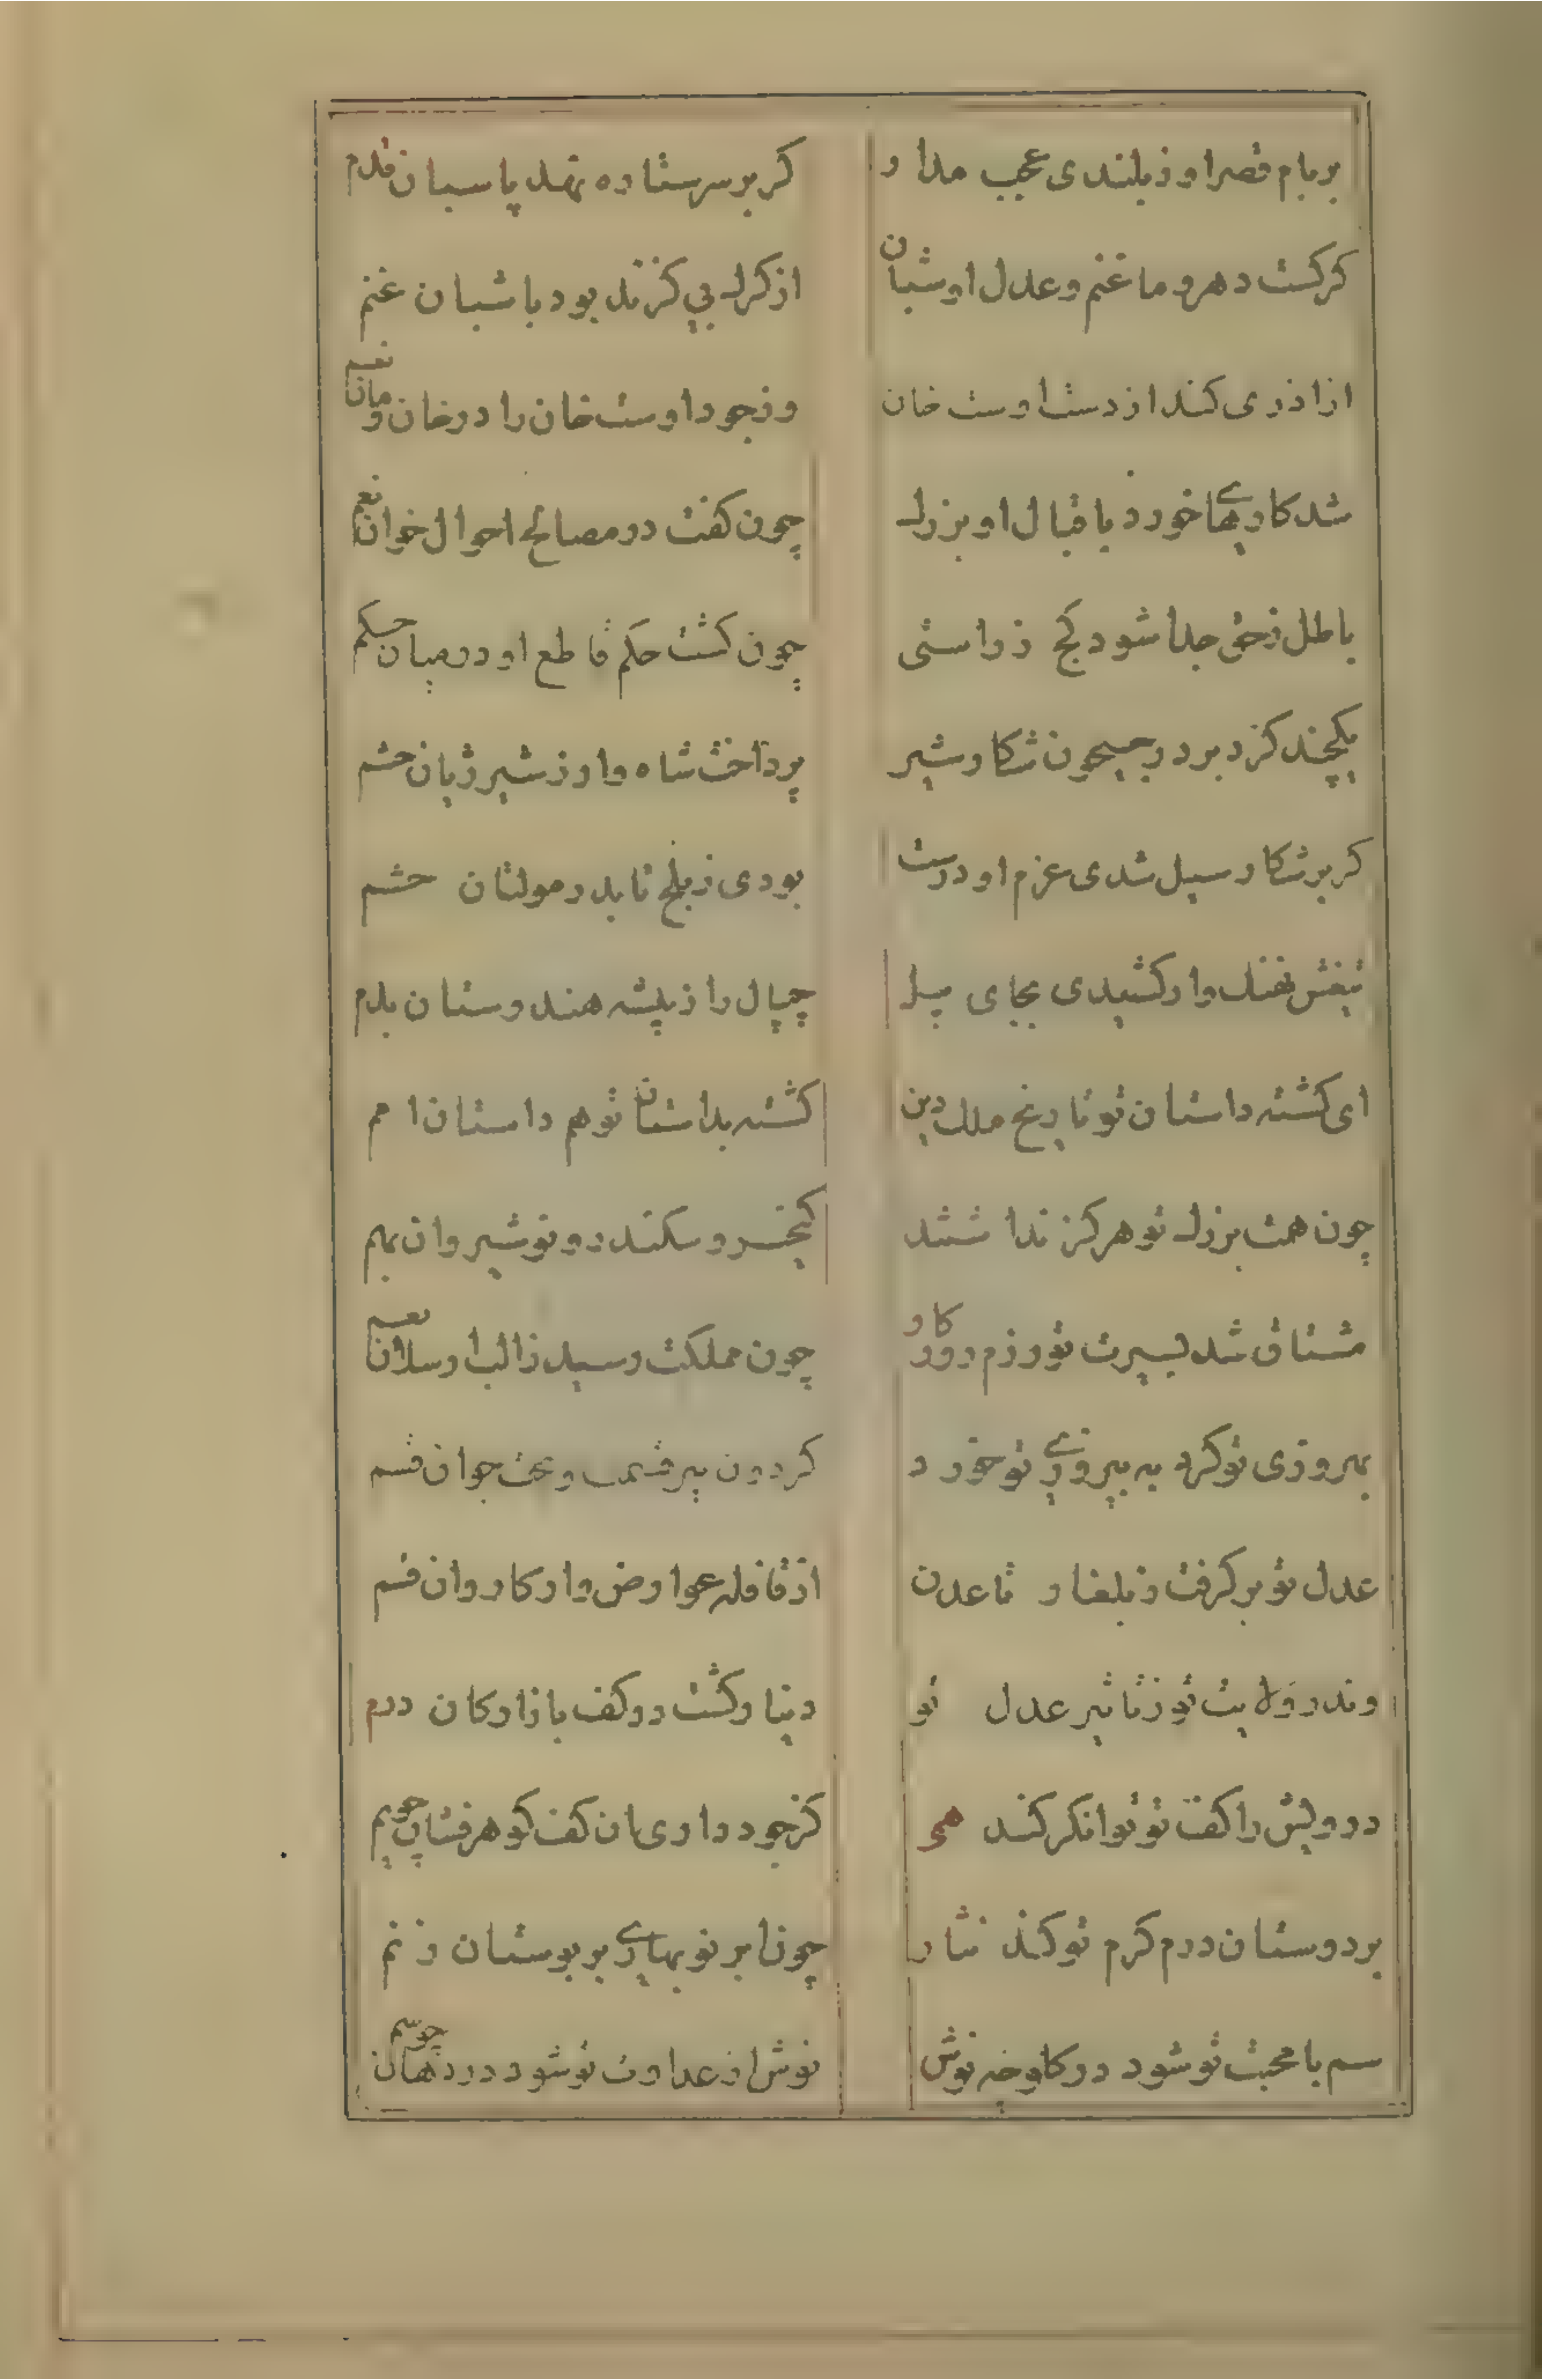 بر بام قصر او ز بلندی عجب مدار
کر بر سر ستاره نهد پاسبان قدم
کرکست دهر و ما غنم و عدل او شبان
از کرک بی کزند بود با شبان غنم
شد کارهای خورد باقبال او بزرک
چون کفت در مصالح احوال خوان نعم
باطل ز حق جدا شود کج ز راستی
چون کشت حکم قاطع او در میان حکم
یکچند کرد بر در جیحون شکار شیر
پرداخت شاه وار ز شیر ژیان حشم
کر بر شکار سیل شدی عزم او درست
بودی ز بلخ تا بدر مولتان حشم
تیغش نهنک وار کشیدی بجای پیل
چیپال را ز پیشه هندوستان بدم
ای کشته داستان تو تاریخ ملک دین
کشته بداستان تو هم داستان امم
چون همت بزرک تو هرکز نداشتند
کیخسرو سکندر و نوشیروان بهم
مشتاق شد بسیرت تو رزم روزکار
چون مملکت رسید ز الب ارسلان نعم
بهروزی تو کرد به پیروزی تو خورد
کردون پیر قسم و بخت جوان قسم
عدل تو بر کرفت ز بلغار تا عدن
از قافله عوارض وار کاروان قسم
وندر ولایت تو ز تاثیر عدل تو
دینار کشت در کف بازارکان درم
درویش را کفت تو توانکر کند همی
کز جود داری ان کف کوهر فشان چویم
بر دوستان درم کرم تو کند نثار
چون ابر نوبهاری بر بوستان ز نم
سم با محبت تو شود در کاو خر نوش
نوش از عداوت تو شود در دهان چو سم